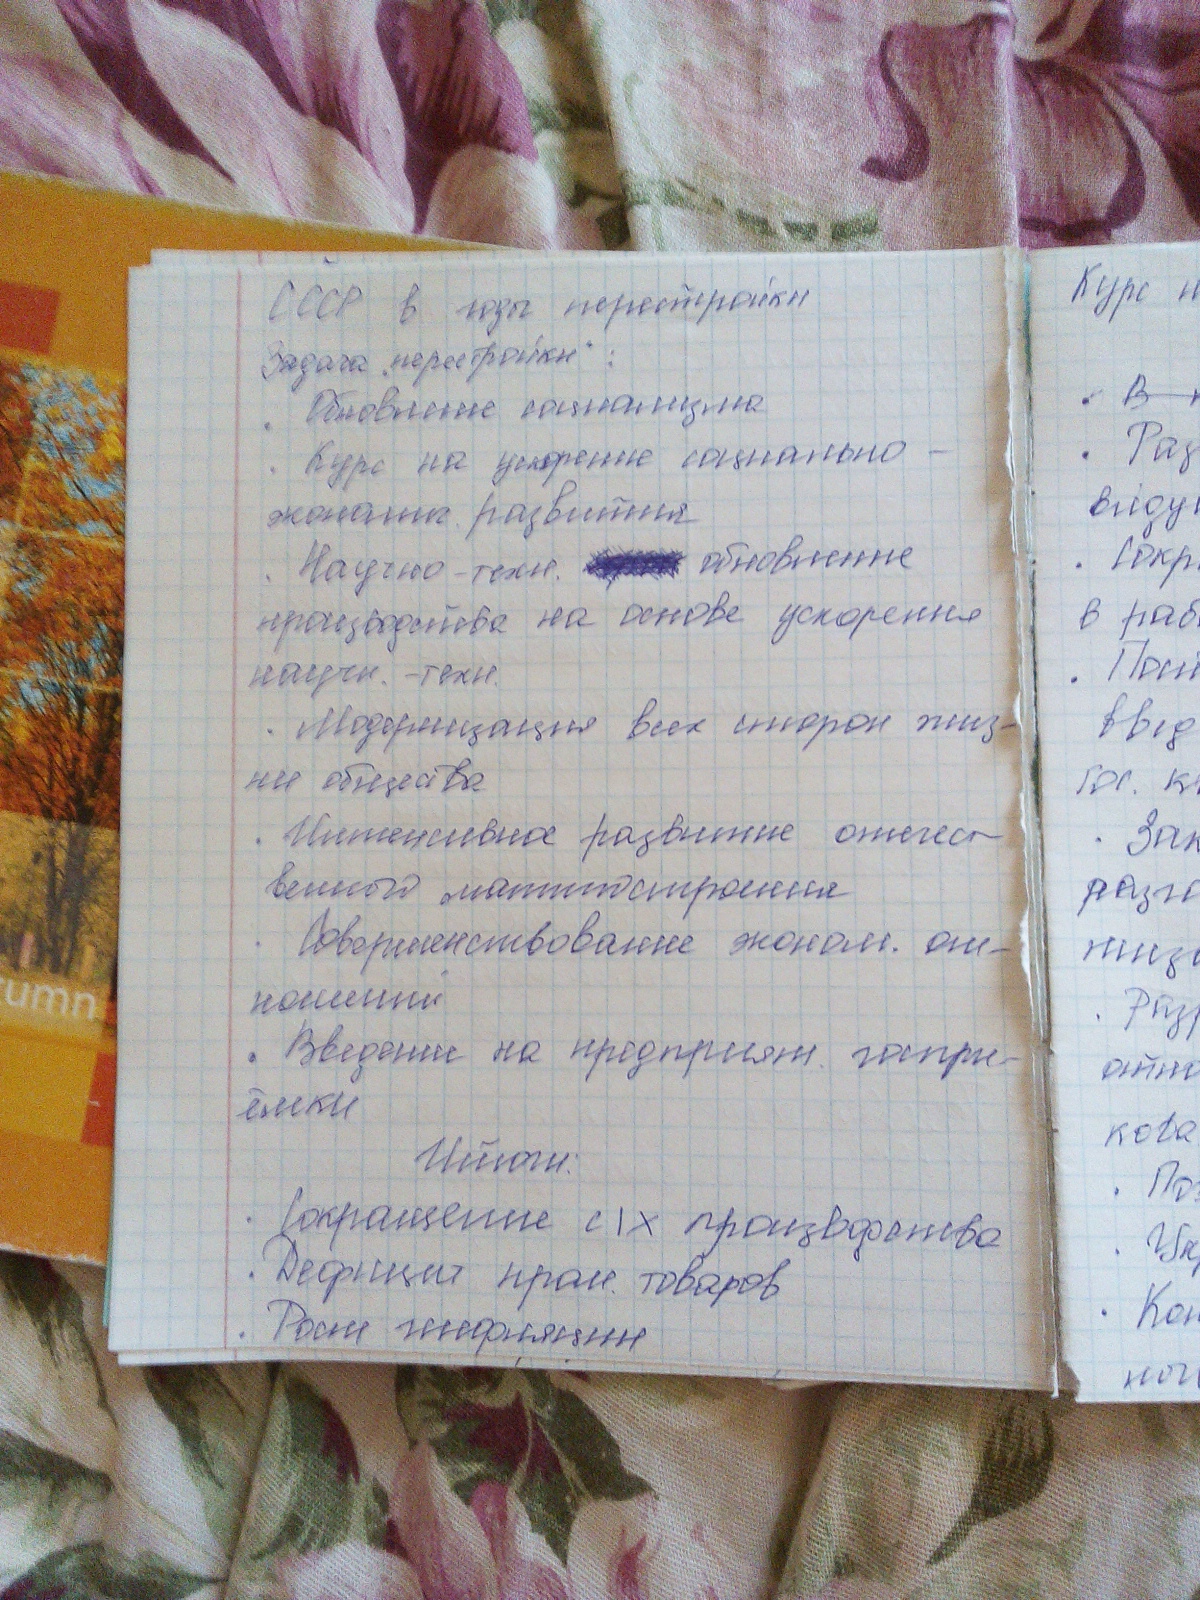 СССР в годы перестройки
Задача "перестройки":
· Обновление социализма
· Курс на ускорение социально -
эконамик. развития
· Научно-техн. обновление
производства на основе ускорения
научн. -техн.
· Модернизация всех сторон жиз-
ни общества
· Интенсивное развитие отечест-
венного машиностроения
· Совершенствование эконом. от-
ношений
· Введение на предприят. госпри-
ёмки
Итоги:
· Сокращение с\х производства
· Дефицит пром. товаров
· Рост инфляции
Курс н
· В
· Раз
виду
· Сокр
в раб
· Пост
введ
гос. к
· Зак
разг
низ
· Разр
отно
кова
· По
· Ук
· Кон
ног
umn